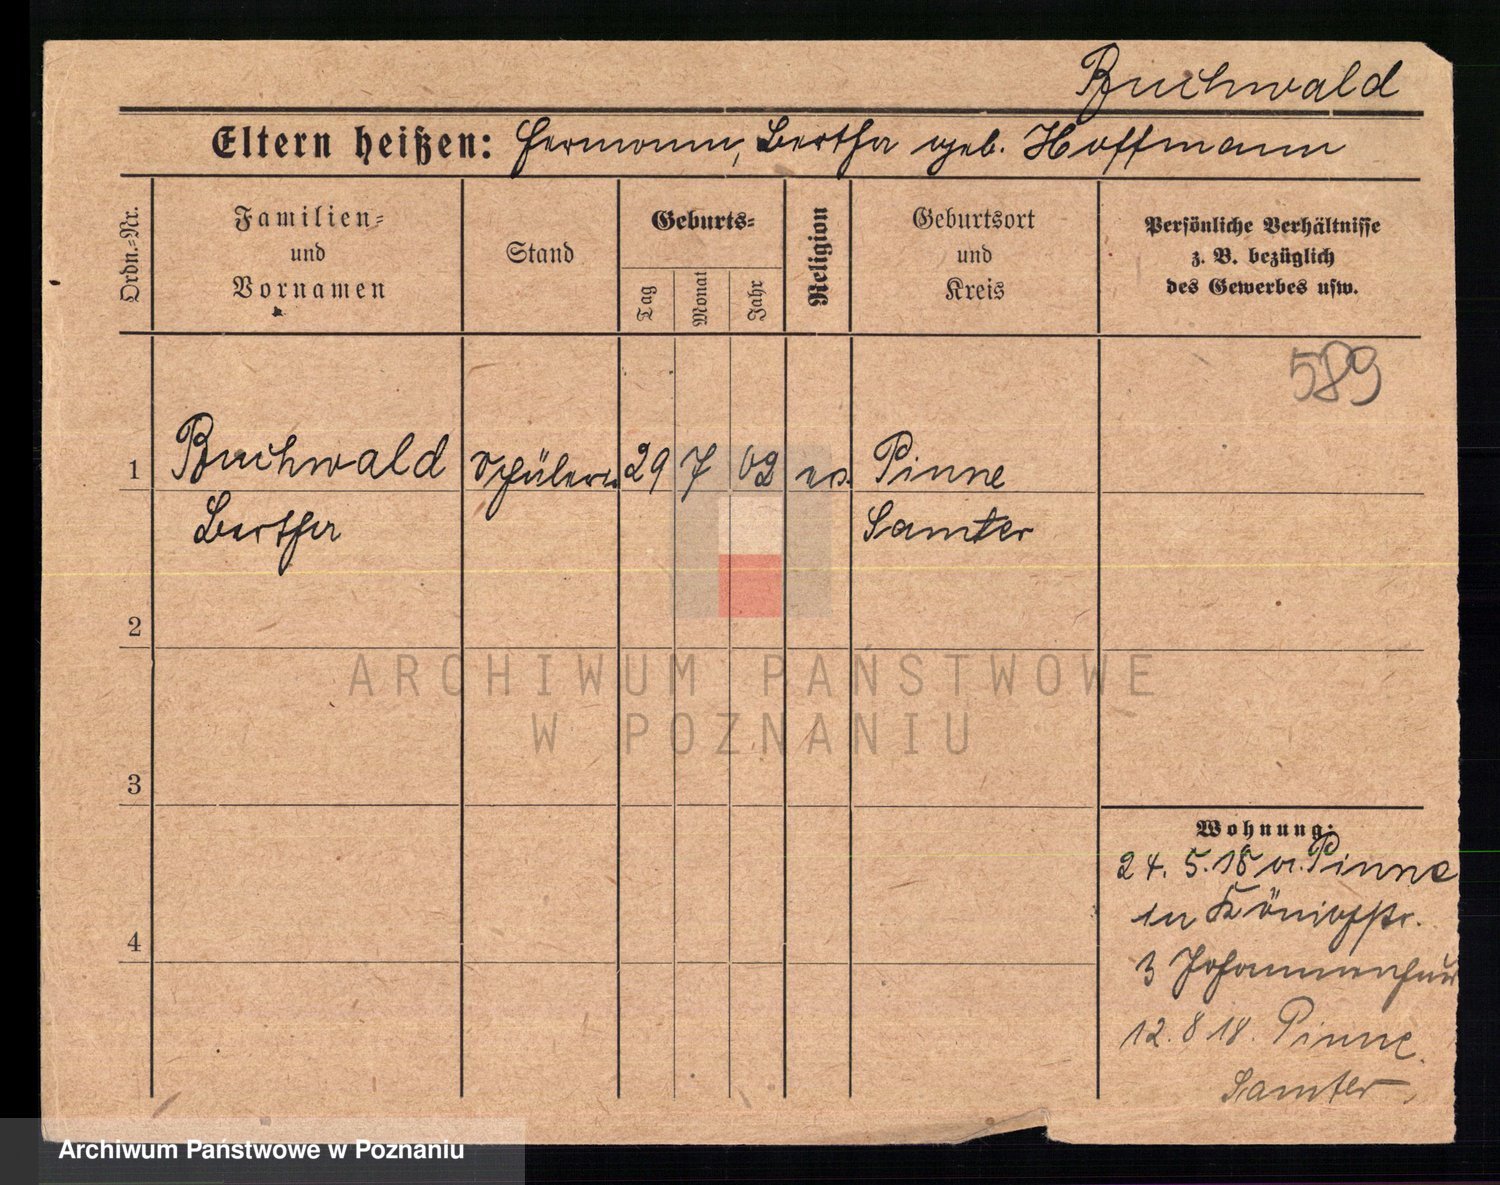 Buchwald
Eltern heißen: Hermann, Bertha geb. Hoffmann
Ordn.=Nr.
Familien=
und
Vornamen
Stand
Geburts=
Tag
Monat
Jahr
Religion
Geburtsort
und
Kreis
Persönliche Verhältnisse
z. B. bezüglich
des Gewerbes usw.
589
1 Buchwald Schülerin 29 7 02 ev. Pinne
Bertha Samter
2
3
4
Wohnung:
24. 5. 18 v. Pinne
in Königstr.
3
12. 8 18. Pinne.
Samter
ARCHIWUM PAŃSTWOWE
W POZNANIU
Archiwum Państwowe w Poznaniu